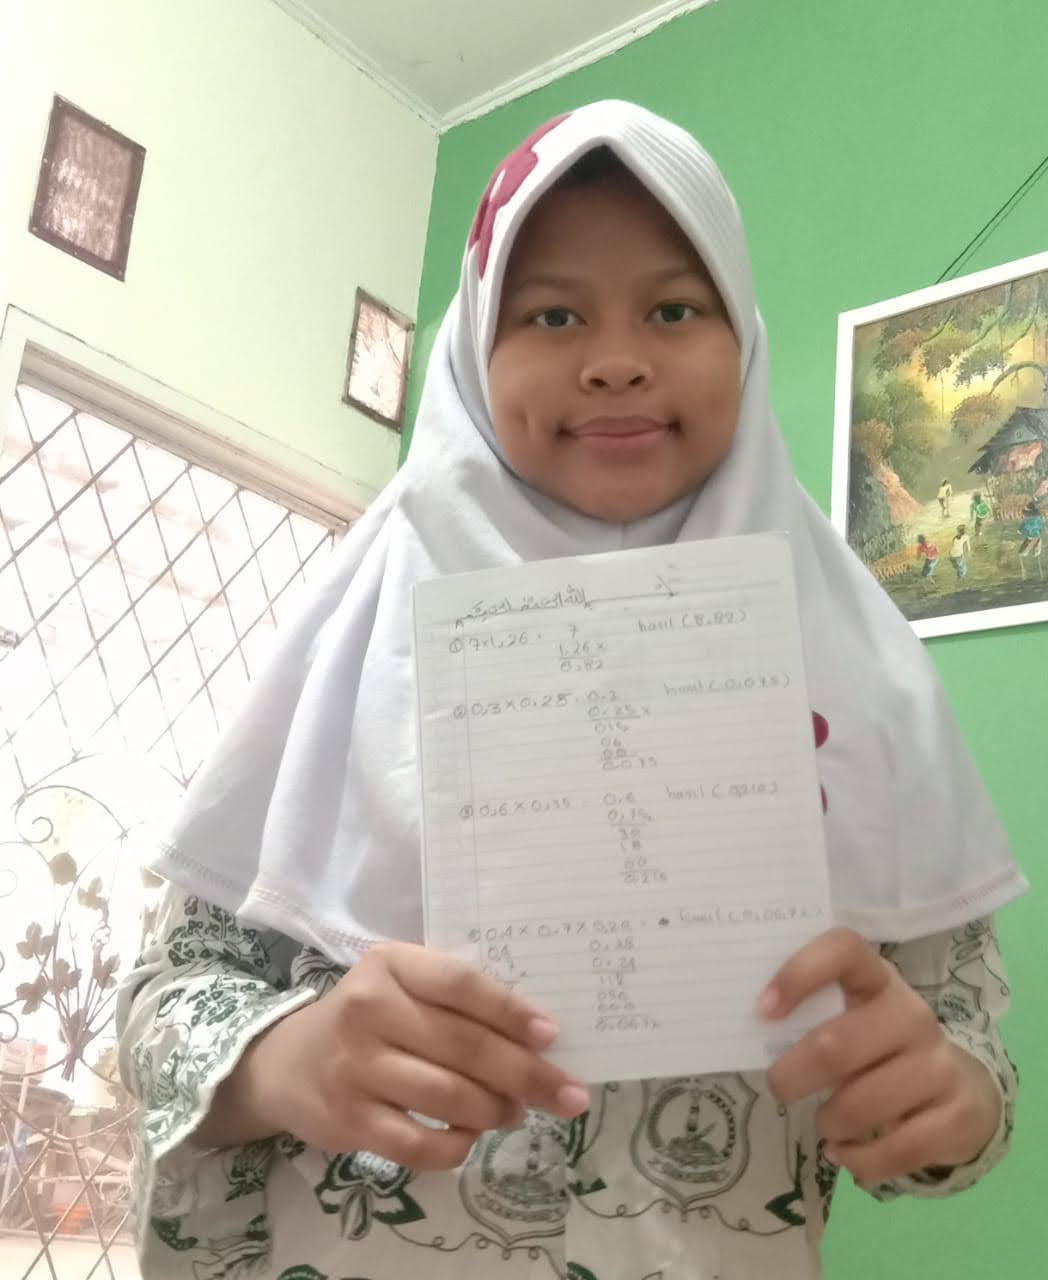 ① 7x1,26 = 7 hasil (8,82)
1,26 x
8,82
② 0,3 x 0,25 = 0,3 hasil (0,075)
0,25 x
015
06
00
0,075
③ 0,6 x 0,35 = 0,6 hasil (0,210)
0,35x
30
18
00
0,210
0,4 x 0,7 x 0,24 = hasil (0,0672)
0,4 0,28
0,24
112
056
000
0,0672